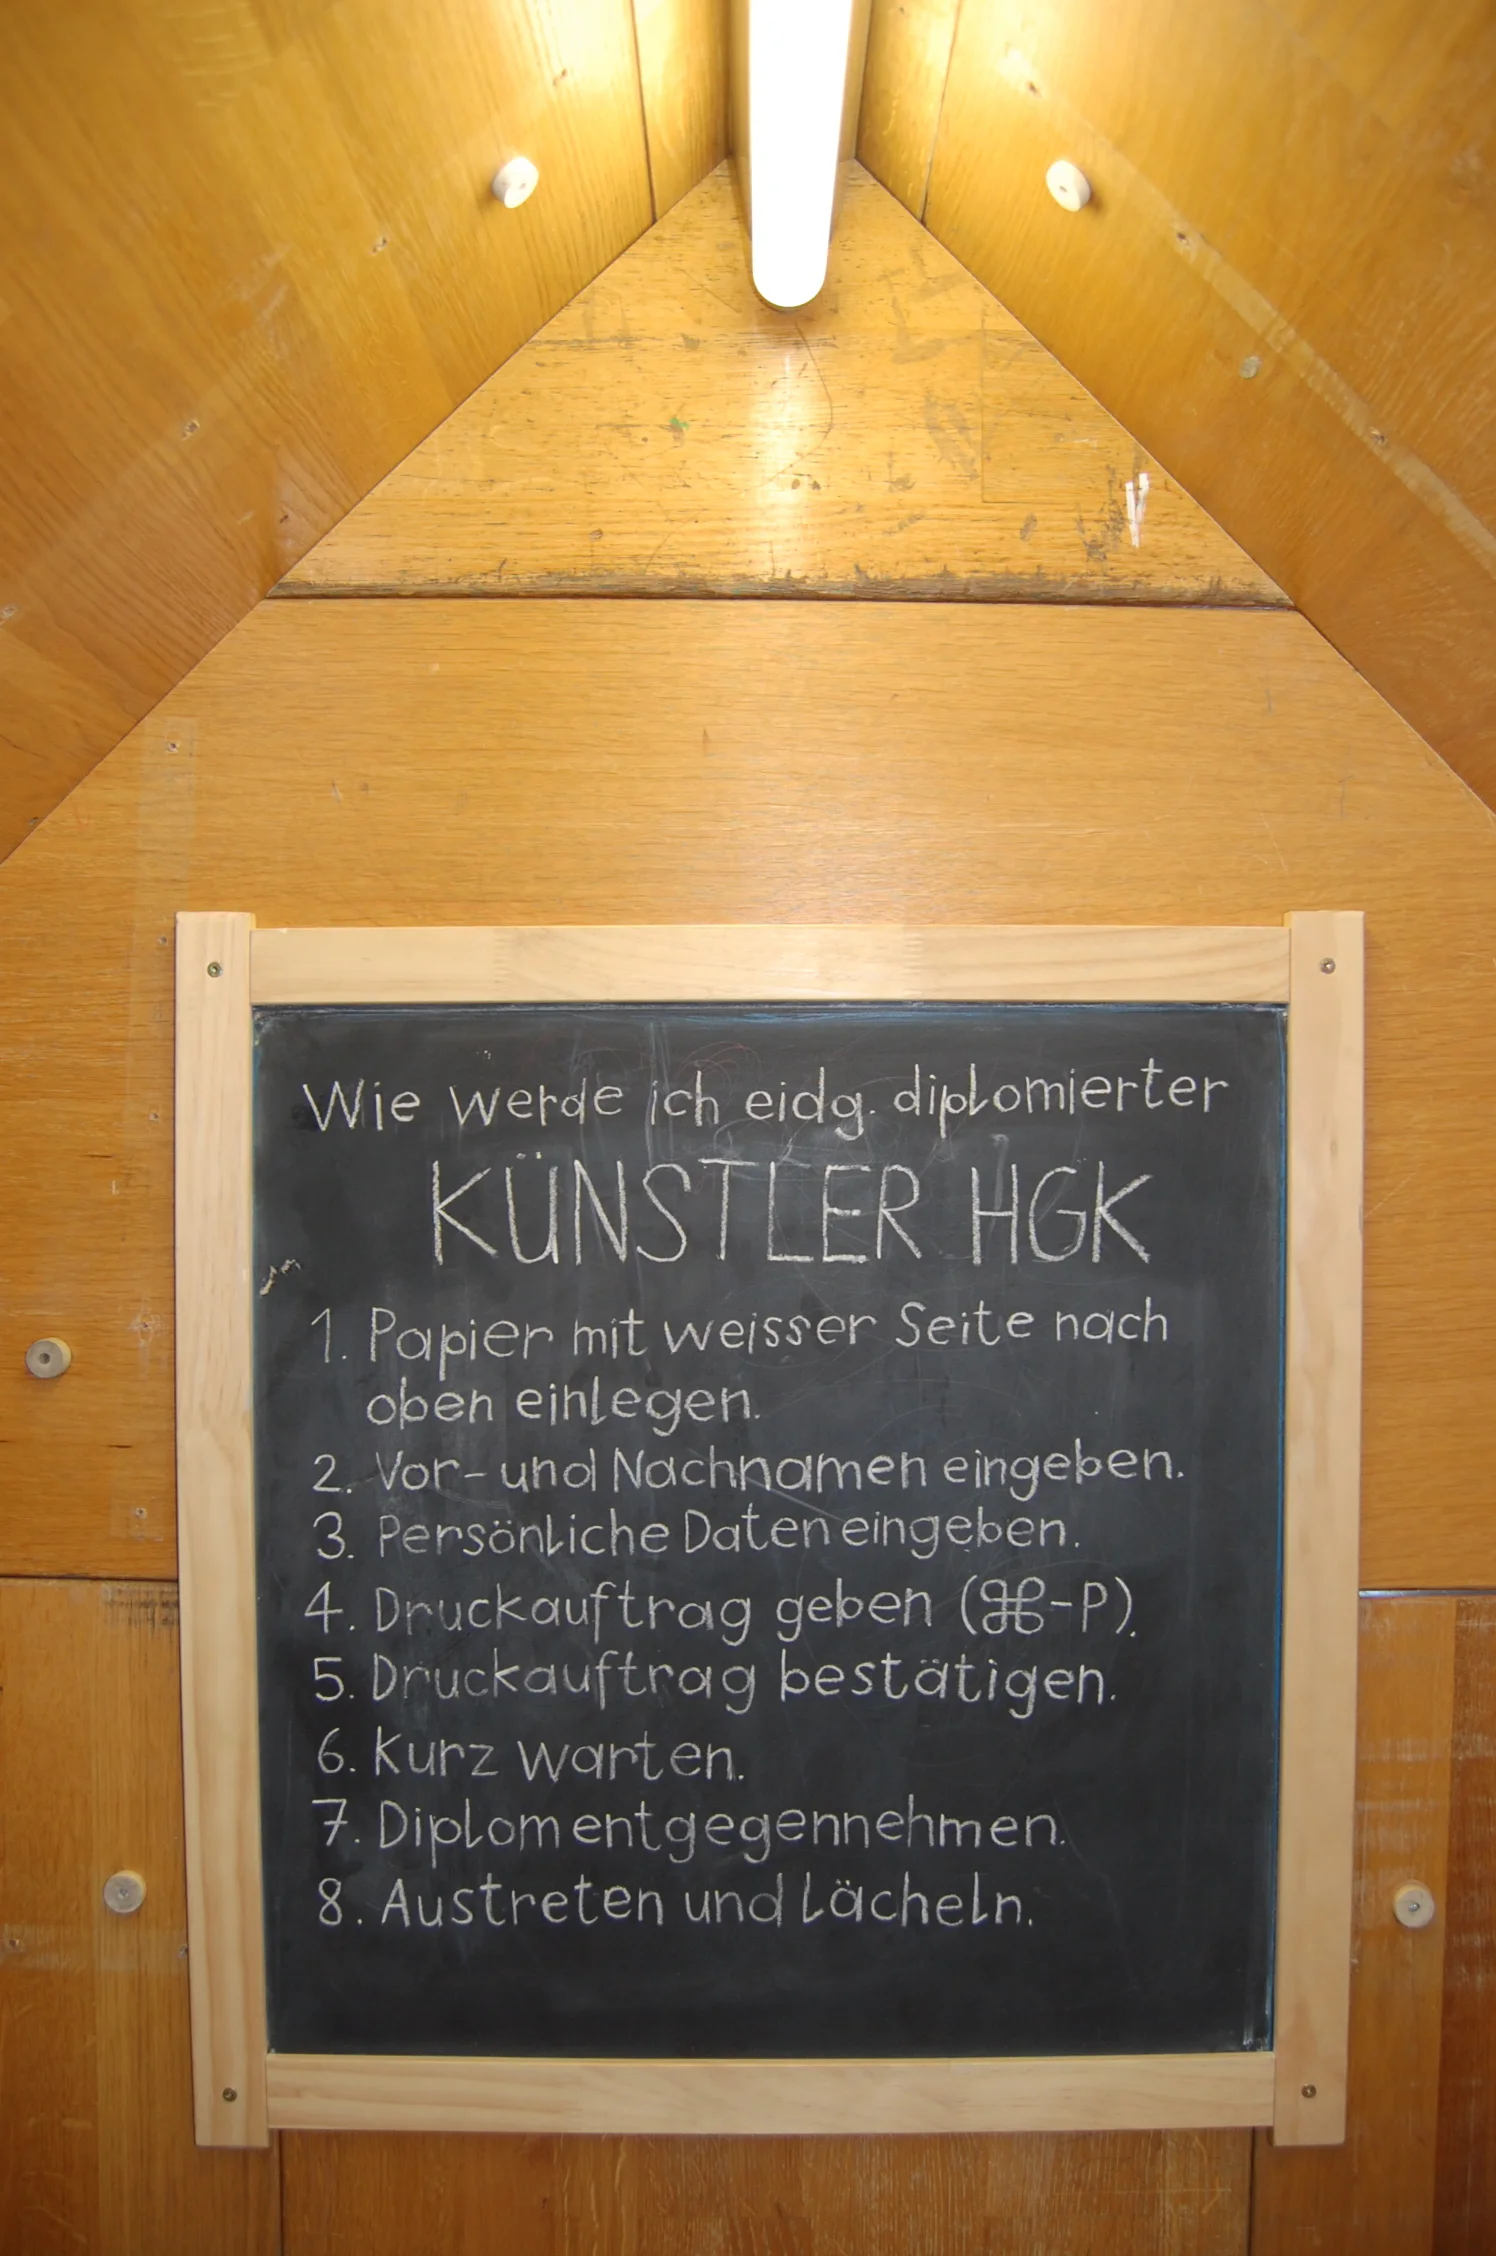 Wie werde ich eidg. diplomierter
KÜNSTLER HGK
1. Papier mit weisser Seite nach
oben einlegen.
2. Vor- und Nachnamen eingeben.
3. Persönliche Daten eingeben.
4. Druckauftrag geben (⌘-P).
5. Druckauftrag bestätigen.
6. Kurz warten.
7. Diplom entgegennehmen.
8. Austreten und Lächeln.